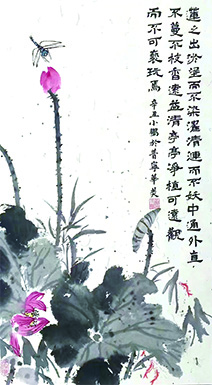 蓮之出於淤而不染濯清漣而不妖中通外直
不蔓不枝香遠益清亭亭淨植可遠觀
而不可褻玩焉 辛丑小鵬於普寧華